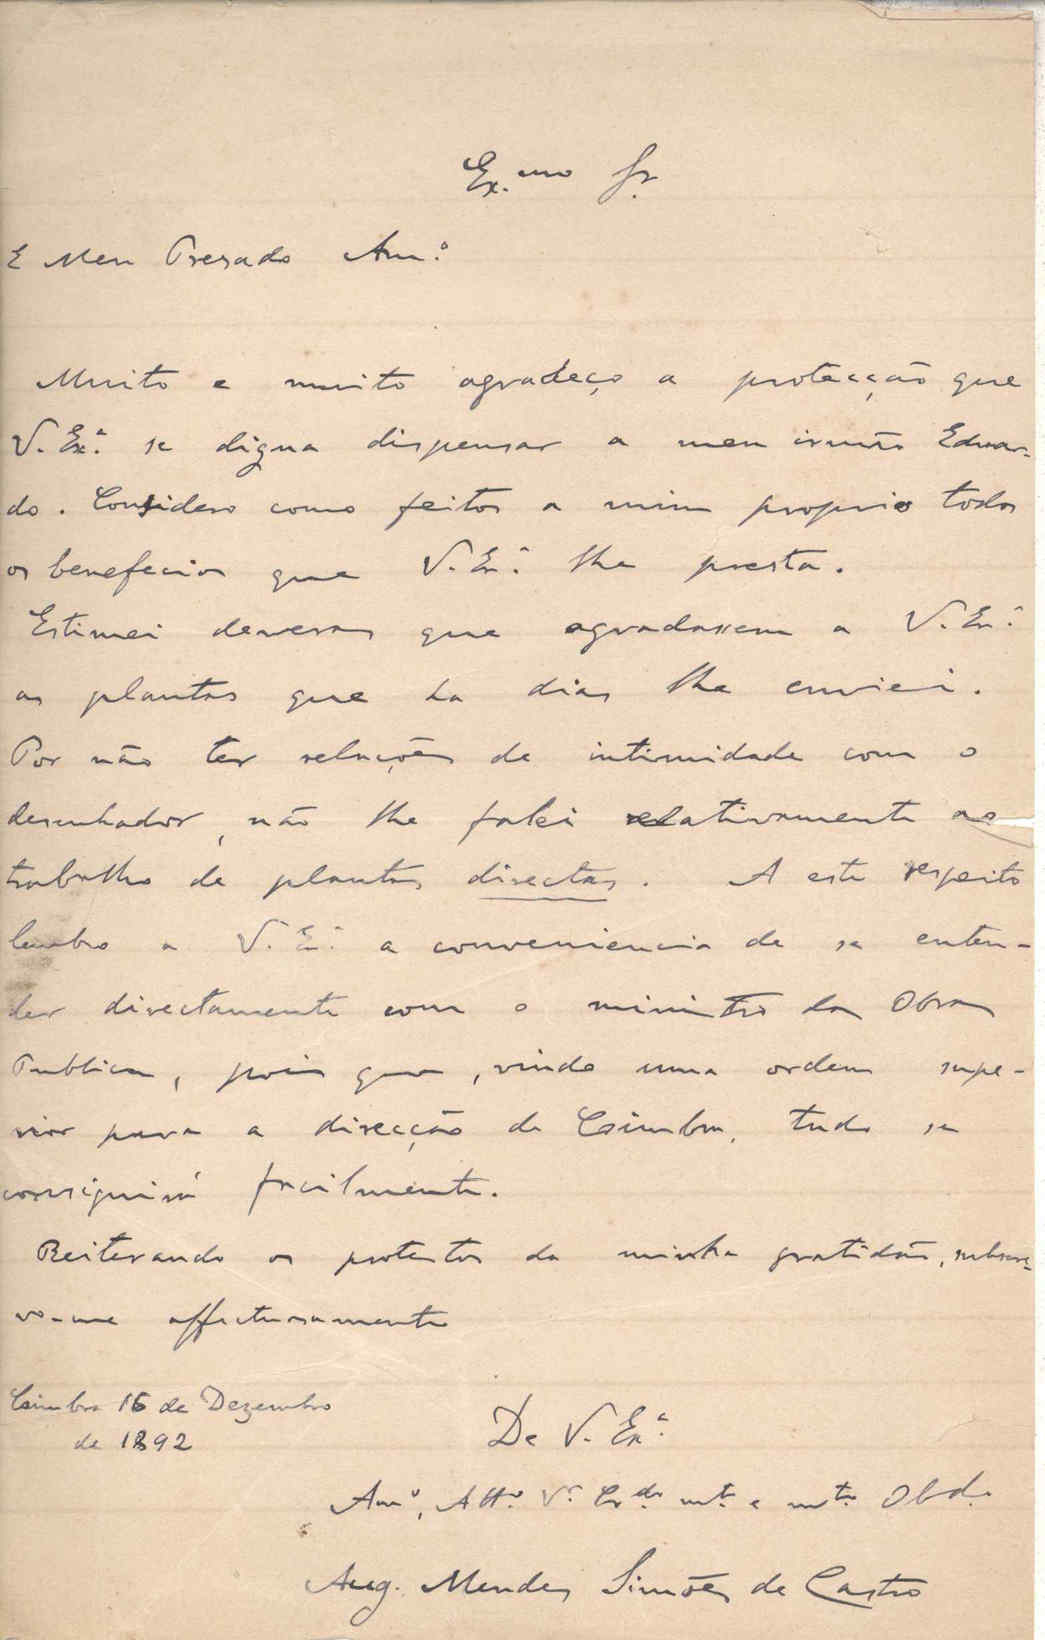 Ex.mo Sr.
E Meu Presado Am.o
Muito e muito agradeço a protecção que
V. Ex.a se digna dispensar a meu irmão Eduar-
do. Considero como feitos a mim proprio todos
os beneficios que V. Ex.a lhe presta.
Estimei deveras que agradassem a V. Ex.a
as plantas que ha dias lhe enviei.
Por não ter relações de intimidade com o
desenhador, não lhe falei relativamente ao
trabalho de plantas directas. A este respeito
lembro a V. Ex.a a conveniencia de se enten-
der directamente com o ministro das Obras
Publicas, pois que, vindo uma ordem supe-
rior para a direcção de Coimbra, tudo se
conseguirá facilmente.
Reiterando os protestos da minha gratidão, subscre-
vo-me affectuosamente
Coimbra 16 de Dezembro
de 1892
De V. Ex.a
Am.o, Att.o V.or Cr.do mt.o e mt.o Obd.o
Aug. Mendes Simões de Castro